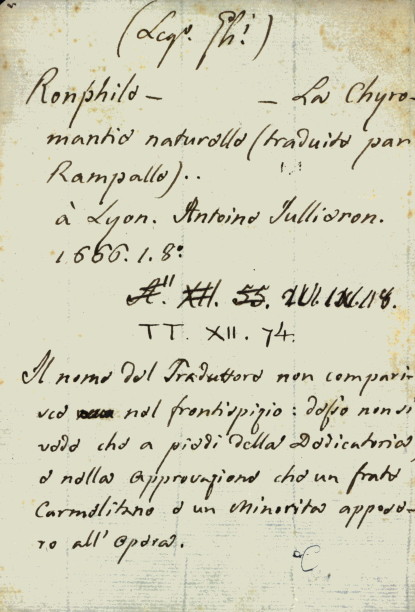 (Legº. Ph!)
Ronphile — — La Chyro-
mantie naturelle (traduite par
Rampalle)..
à Lyon. Antoine Jullieron.
1666. 1. 8º
XII. 55.
TT. XII. 74.
Il nome del Traduttore non compari-
sce nel frontispizio: desso non si
vede che a piedi della Dedicatoria,
e nella approvazione che un frate
Carmelitano e un Minorita appose-
ro all' opera.
C